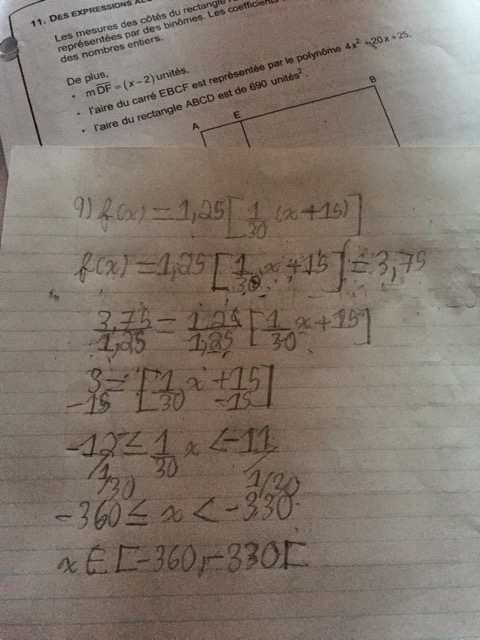 11. DES EXPRESSIONS
Les mesures des côtés du rectangle
représentées par des binômes. Les coefficients
des nombres entiers.
De plus,
• m DF = (x – 2) unités,
• l'aire du carré EBCF est représentée par le polynôme 4x² + 20x + 25,
• l'aire du rectangle ABCD est de 690 unités².
A E B
9) f(x) = 1,25[1/30 (x+15)]
f(x) = 1,25 [1/30 x + 15] = 3,75
3,75/1,25 = 1,25/1,25 [1/30 x + 15]
3 = [1/30 x + 15]
-15 -15
-12 ≤ 1/30 x < -11
/1/30 /1/30
-360 ≤ x < -330
x ∈ [-360, -330[